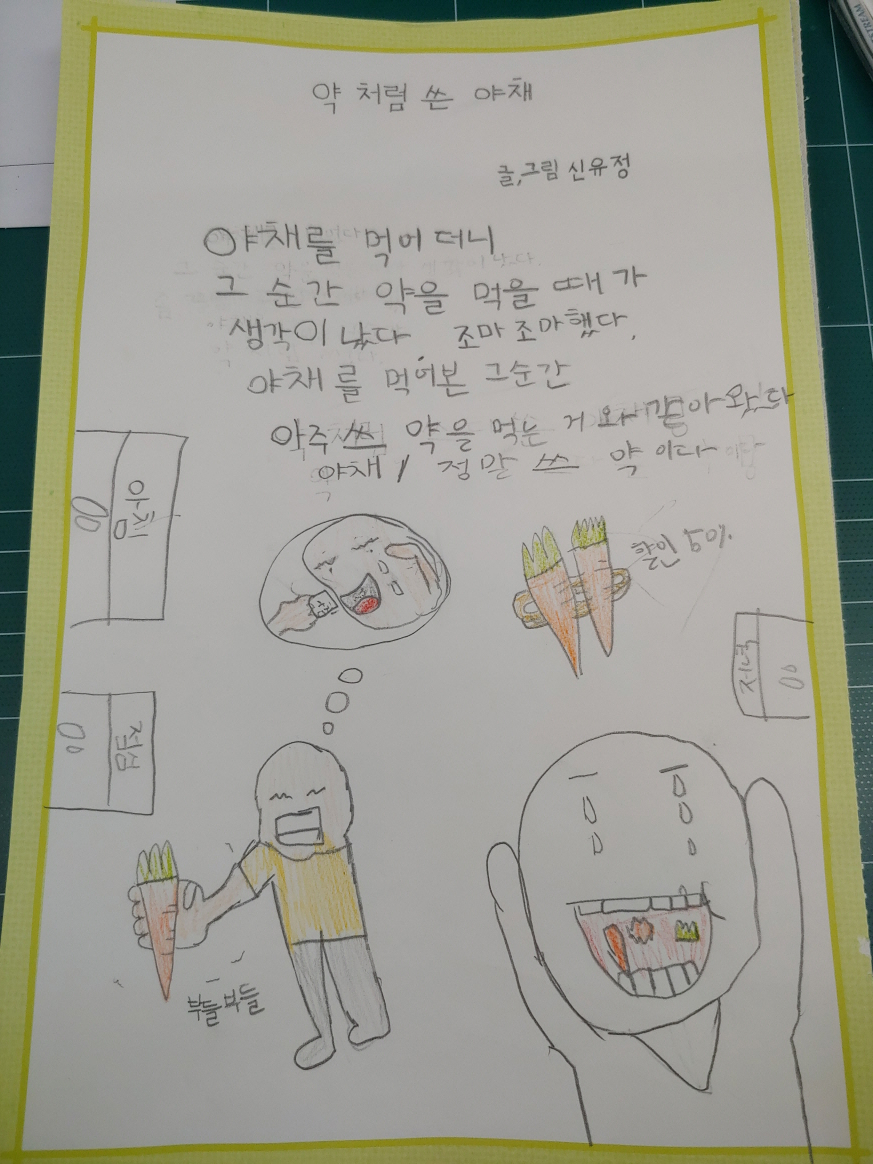 약 처럼 쓴 야채
글,그림 신유정
야채를 먹어더니
그 순간 약을 먹을 때가
생각이 났다 조마조마했다.
야채를 먹어본 그순간
아주 쓰 약을 먹는 거 와 같아 왔다
야채 / 정말 쓰 약 이다
아침
할인 50%
저녁
점심
부들부들